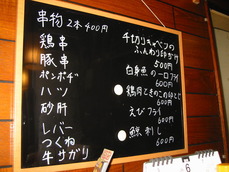 串物 2本400円
鶏串
豚串
ポンポギ
ハツ
砂肝
レバー
つくね
牛サガリ
千切りキャベツの
ふんわり卵とじ
500円
白身魚の一口フライ
600円
鶏肉ときのこの卵とじ
600円
えびフライ
600円
鯨刺し
600円
6